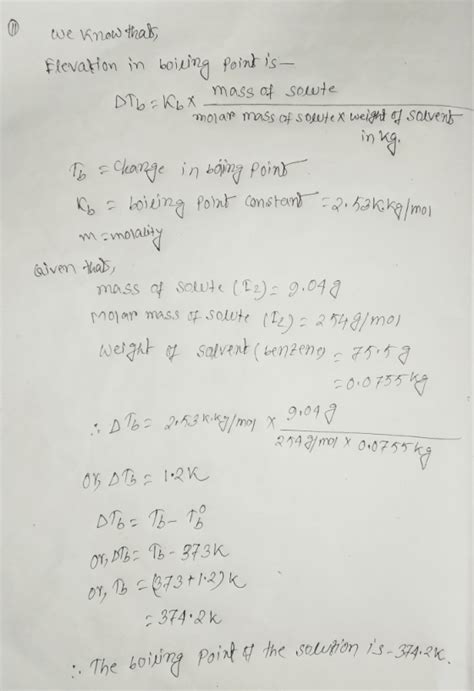 11
We know that,
Elevation in boiling point is—
ΔTb = Kb x mass of solute / molar mass of solute x weight of solvent in kg.
Tb = Change in boiling point
Kb = boiling point constant = 2.53 K.kg/mol
m = molality
Given that,
mass of solute (I2) = 9.04g
Molar mass of solute (I2) = 254g/mol
weight of solvent (benzene) = 75.5g
= 0.0755kg
∴ ΔTb = 2.53 K.kg/mol x 9.04g / 254g/mol x 0.0755kg
or, ΔTb = 1.2K
ΔTb = Tb - Tb°
or, ΔTb = Tb - 373K
or, Tb = (373+1.2)K
= 374.2K
∴ The boiling point of the solution is - 374.2K.